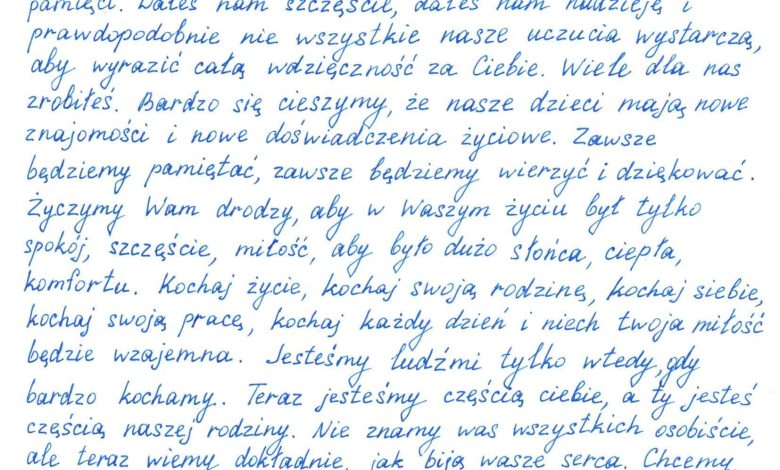 pamięci. Dałeś nam szczęście, dałeś nam nadzieję i
prawdopodobnie nie wszystkie nasze uczucia wystarczą,
aby wyrazić całą wdzięczność za Ciebie. Wiele dla nas
zrobiłeś. Bardzo się cieszymy, że nasze dzieci mają nowe
znajomości i nowe doświadczenia życiowe. Zawsze
będziemy pamiętać, zawsze będziemy wierzyć i dziękować.
Życzymy Wam drodzy, aby w Waszym życiu był tylko
spokój, szczęście, miłość, aby było dużo słońca, ciepła,
komfortu. Kochaj życie, kochaj swoją rodzinę, kochaj siebie,
kochaj swoją pracę, kochaj każdy dzień i niech twoja miłość
będzie wzajemna. Jesteśmy ludźmi tylko wtedy, gdy
bardzo kochamy. Teraz jesteśmy częścią ciebie, a ty jesteś
częścią naszej rodziny. Nie znamy was wszystkich osobiście,
ale teraz wiemy dokładnie, jak biją wasze serca. Chcemy